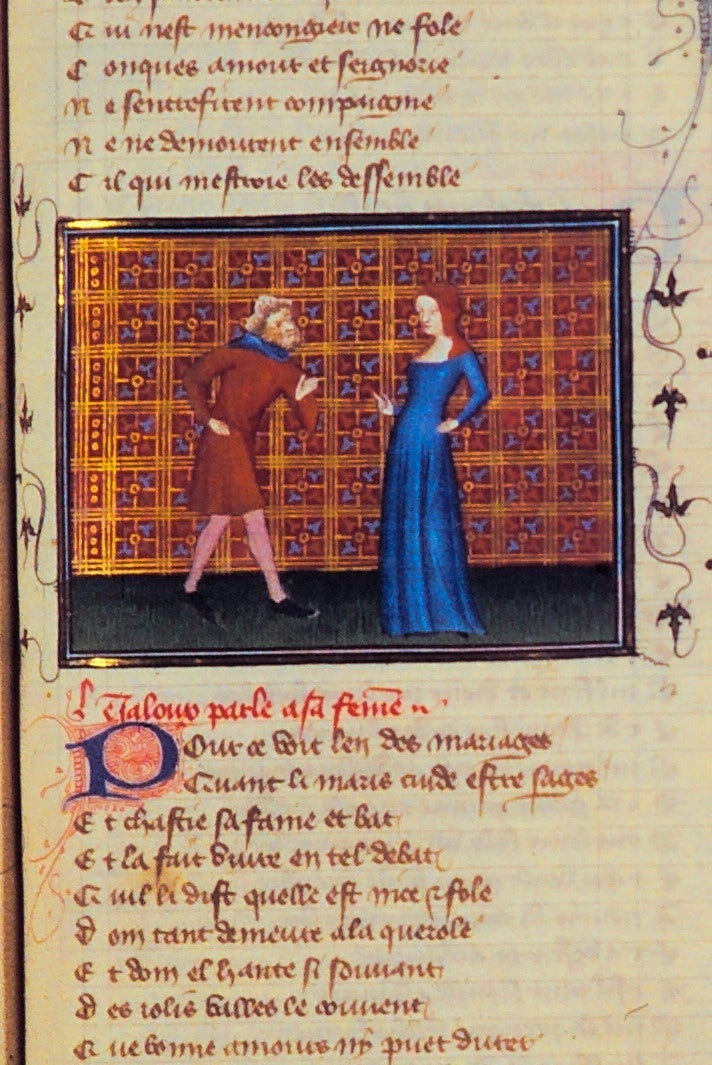 Qui nest mencongiere ne fole
Conques amour et seignorie
Ne sentrefirent compaignie
Ne ne demourent ensemble
Cil qui mestroie les dessemble
Le Jaloux parle a sa femme
Pour ce voit len des mariages
Quant li maris cuide estre sages
Et chastie sa fame et bat
Et la fait vivre en tel debat
Quil li dist quelle est nice et fole
Dont tant demeure a la querole
Et dont el hante si souvant
Des iolis valles le couvent
Que bonne amours ny puet durer